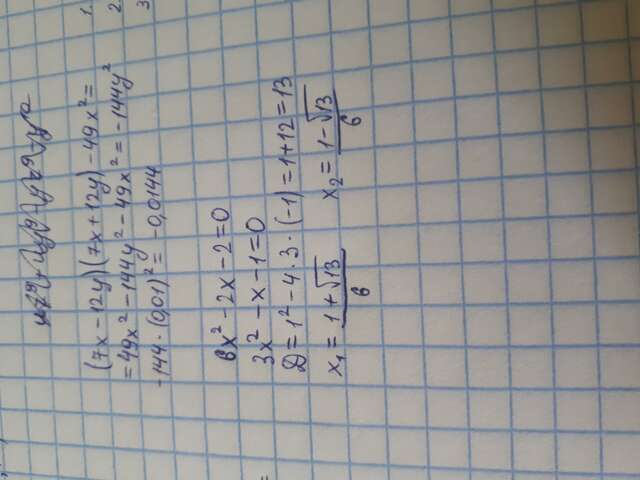 (7x-12y)(7x+12y)-49x²=
=49x²-144y²-49x²=-144y²
-144·(0,01)²=-0,0144
6x²-2x-2=0
3x²-x-1=0
D=1²-4·3·(-1)=1+12=13
x₁=(1+√13)/6 x₂=(1-√13)/6
1.
2.
3
=